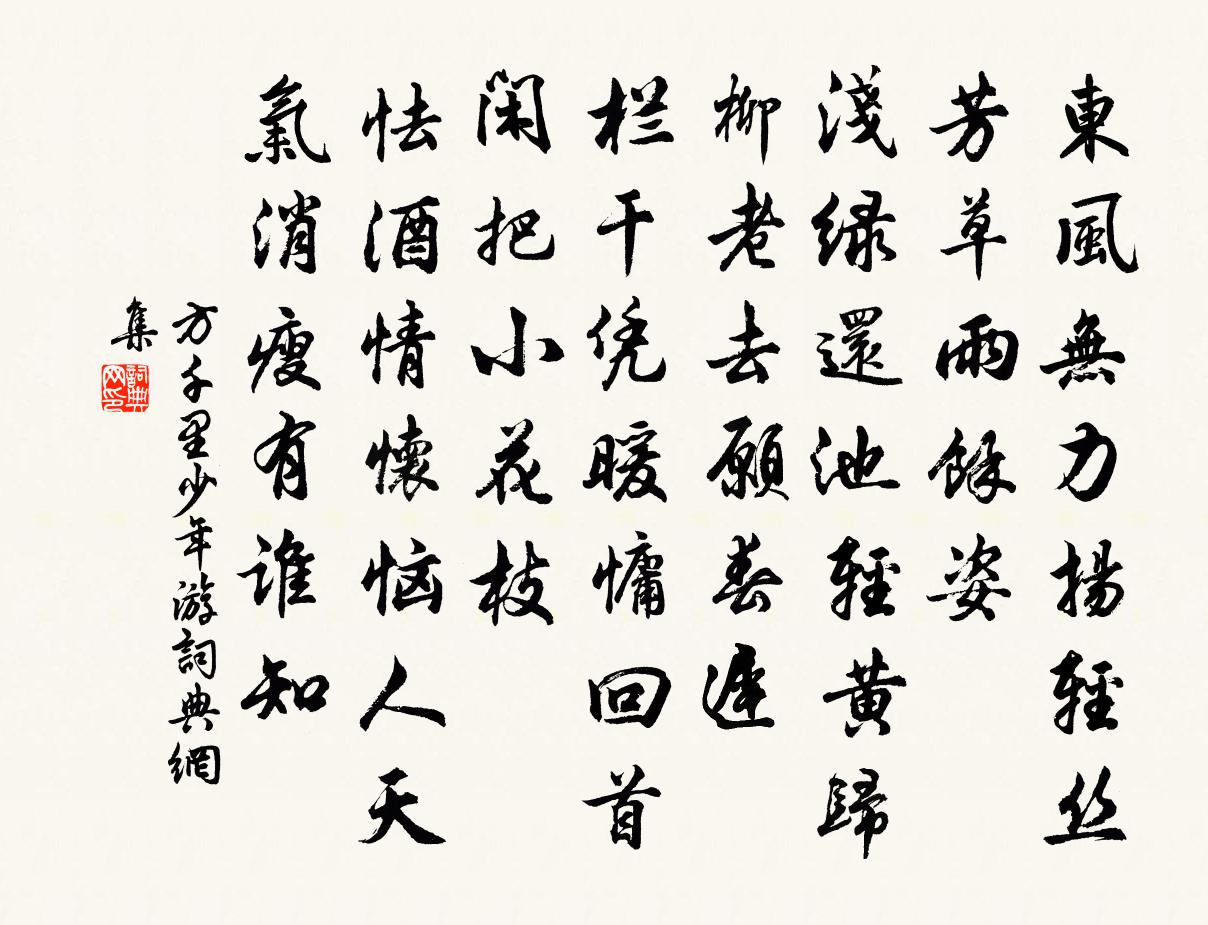 東風無力揚輕丝
芳草雨餘姿
淺绿還池輕黄歸
柳老去願春遲
栏干凭暖慵回首
閑把小花枝
怯酒情懷恼人天
氣消瘦有谁知
方千里少年游詞典網
集
詞典网印